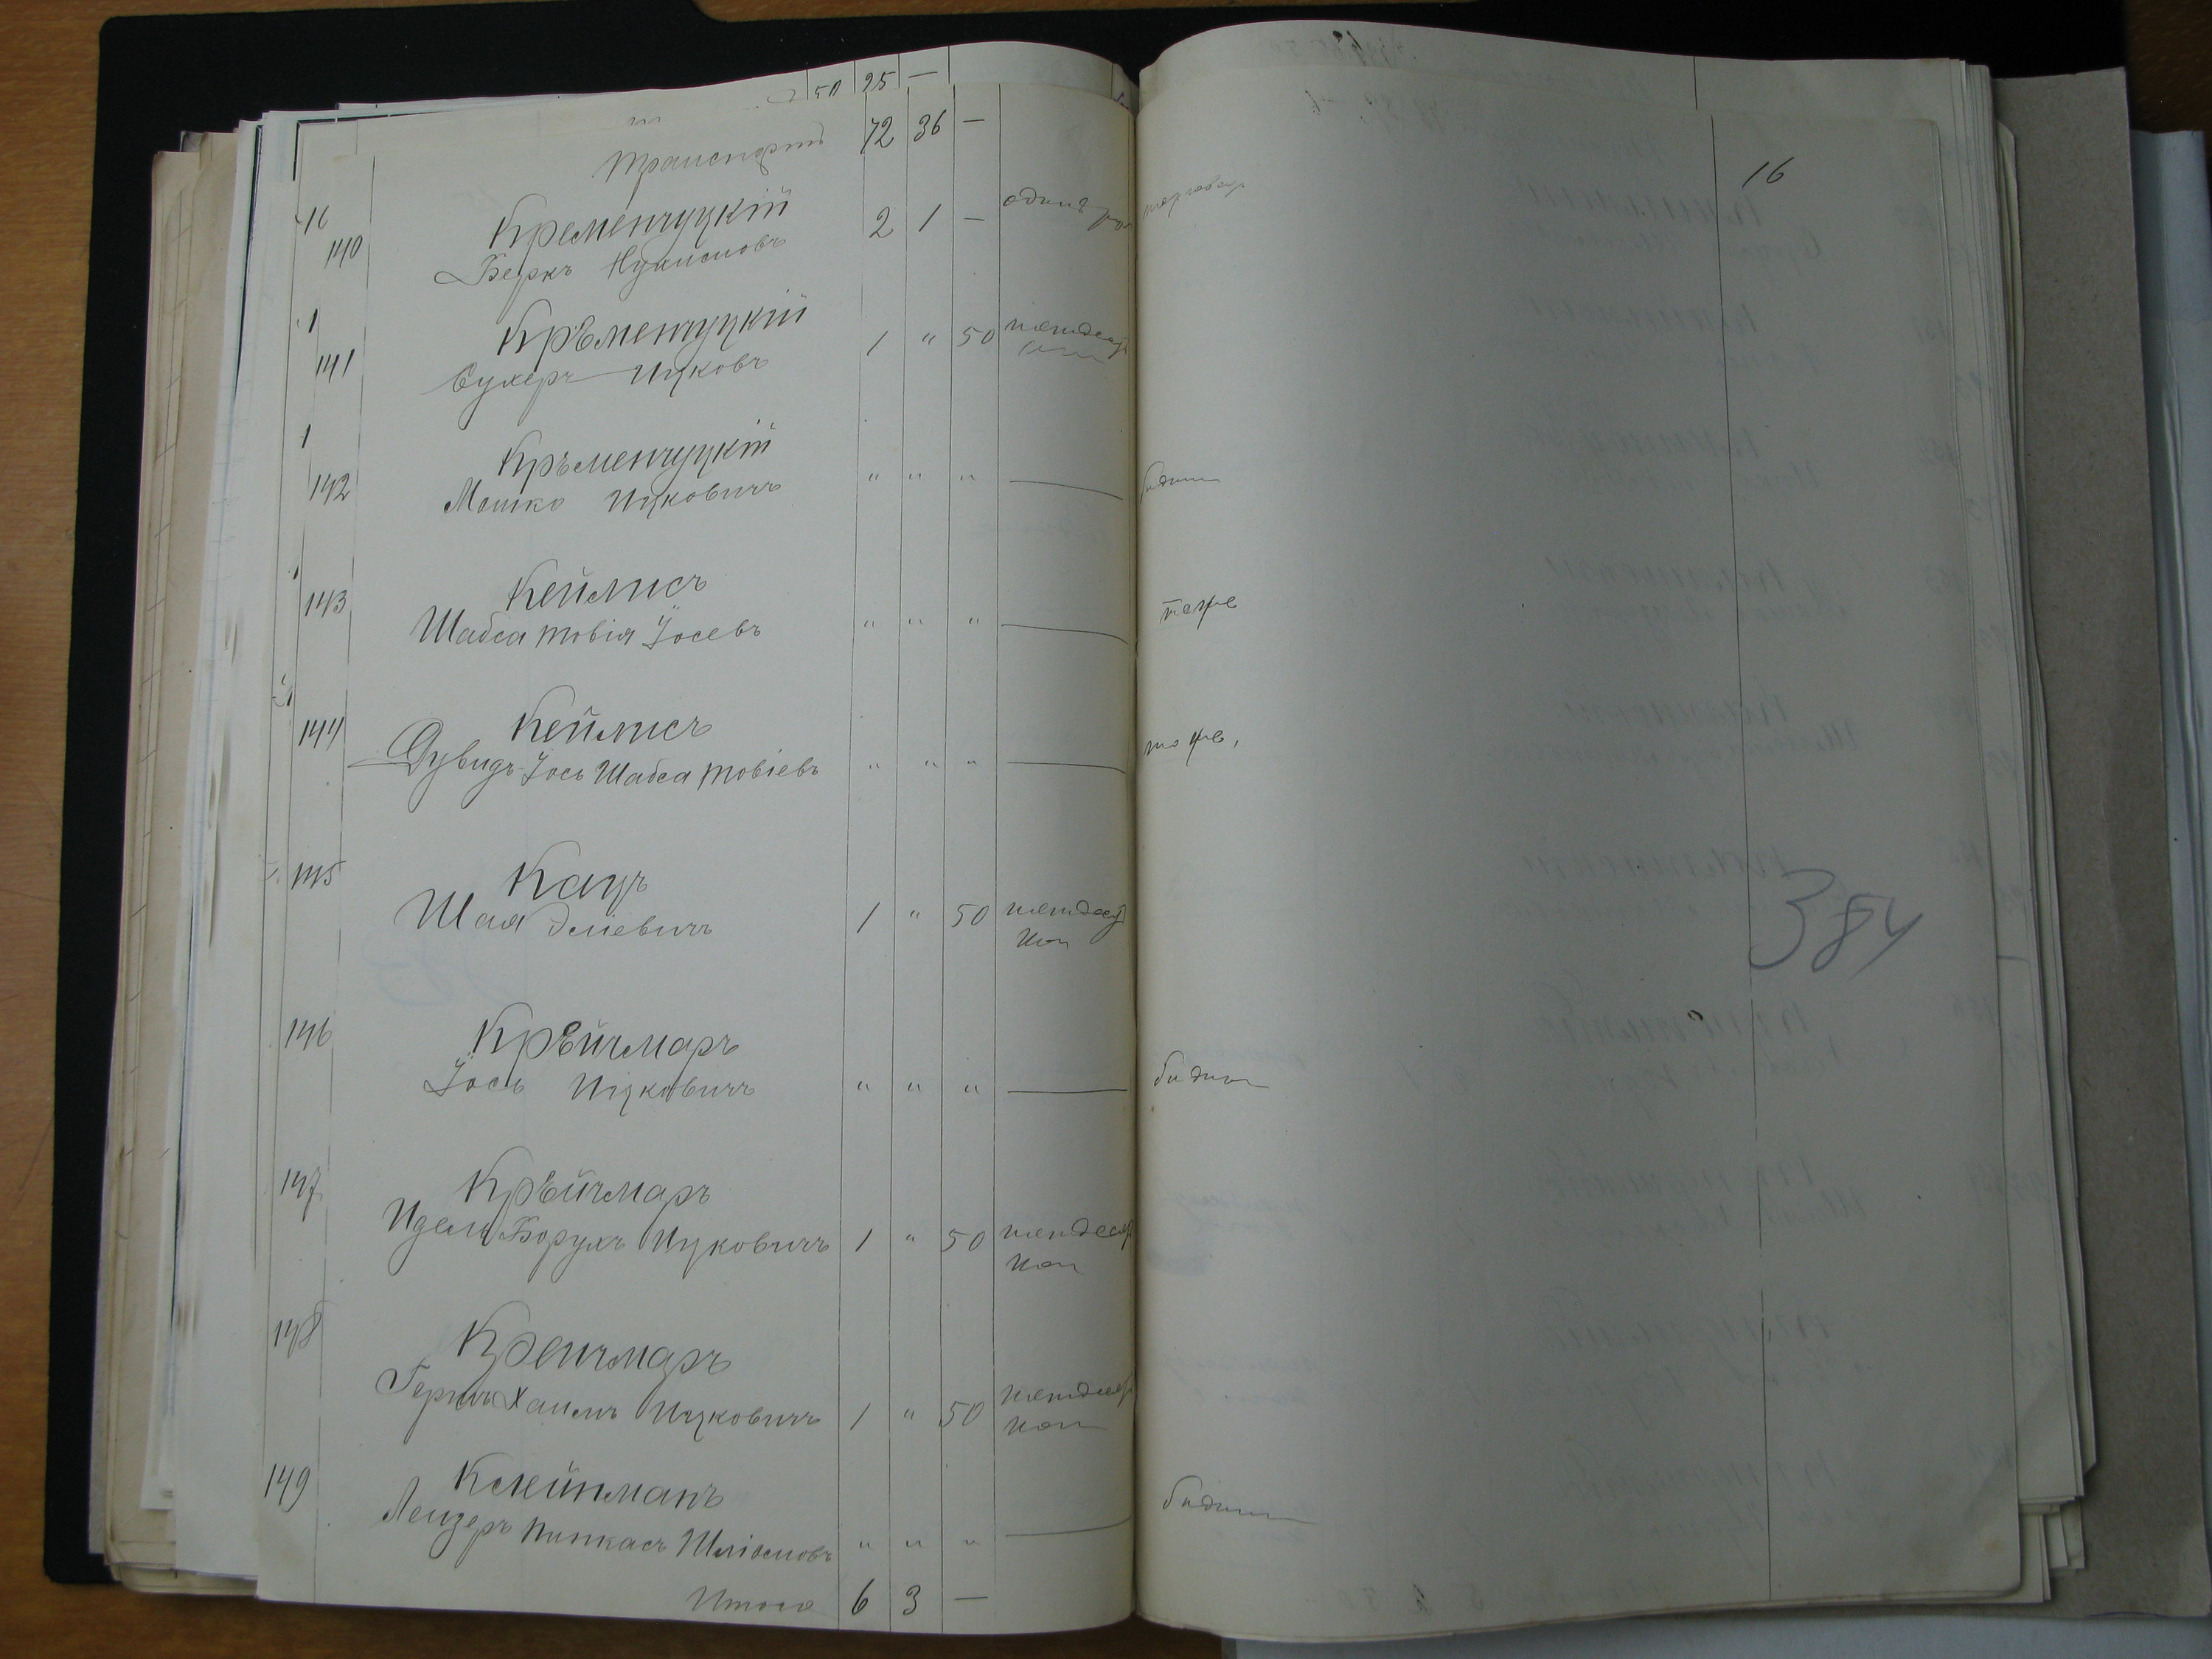 50 25 —
Транспортъ 72 36 —
16
16
140 Кременчуцкій
Беркъ Нухимовъ 2 1 — одинъ руб торговецъ
1
141 Крѣменчуцкій
Сухеръ Ицковъ 1 " 50 пятдесят
коп
1
142 Крѣменчуцкій
Мошко Ицковичъ " " " — бѣднъ
143 Кейлисъ
Шабса товія Іосевъ " " " — тоже
144 Кейлисъ
Дувидъ-Іось Шабса товіевъ " " " — тоже,
145 Кацъ
Шая Эліевичъ 1 " 50 пятдесят
коп
384
146 Крѣйчмаръ
Іось Ицковичъ " " " — бѣднъ
147 Крѣйчмаръ
Идель Борухъ Ицковичъ 1 " 50 пятдесят
коп
148 Креичмаръ
Гершъ Хаимъ Ицковичъ 1 " 50 пятдесят
коп
149 Клейнманъ
Лейзеръ Пинкасъ Шліомовъ " " " — бѣднъ
Итого 6 3 —